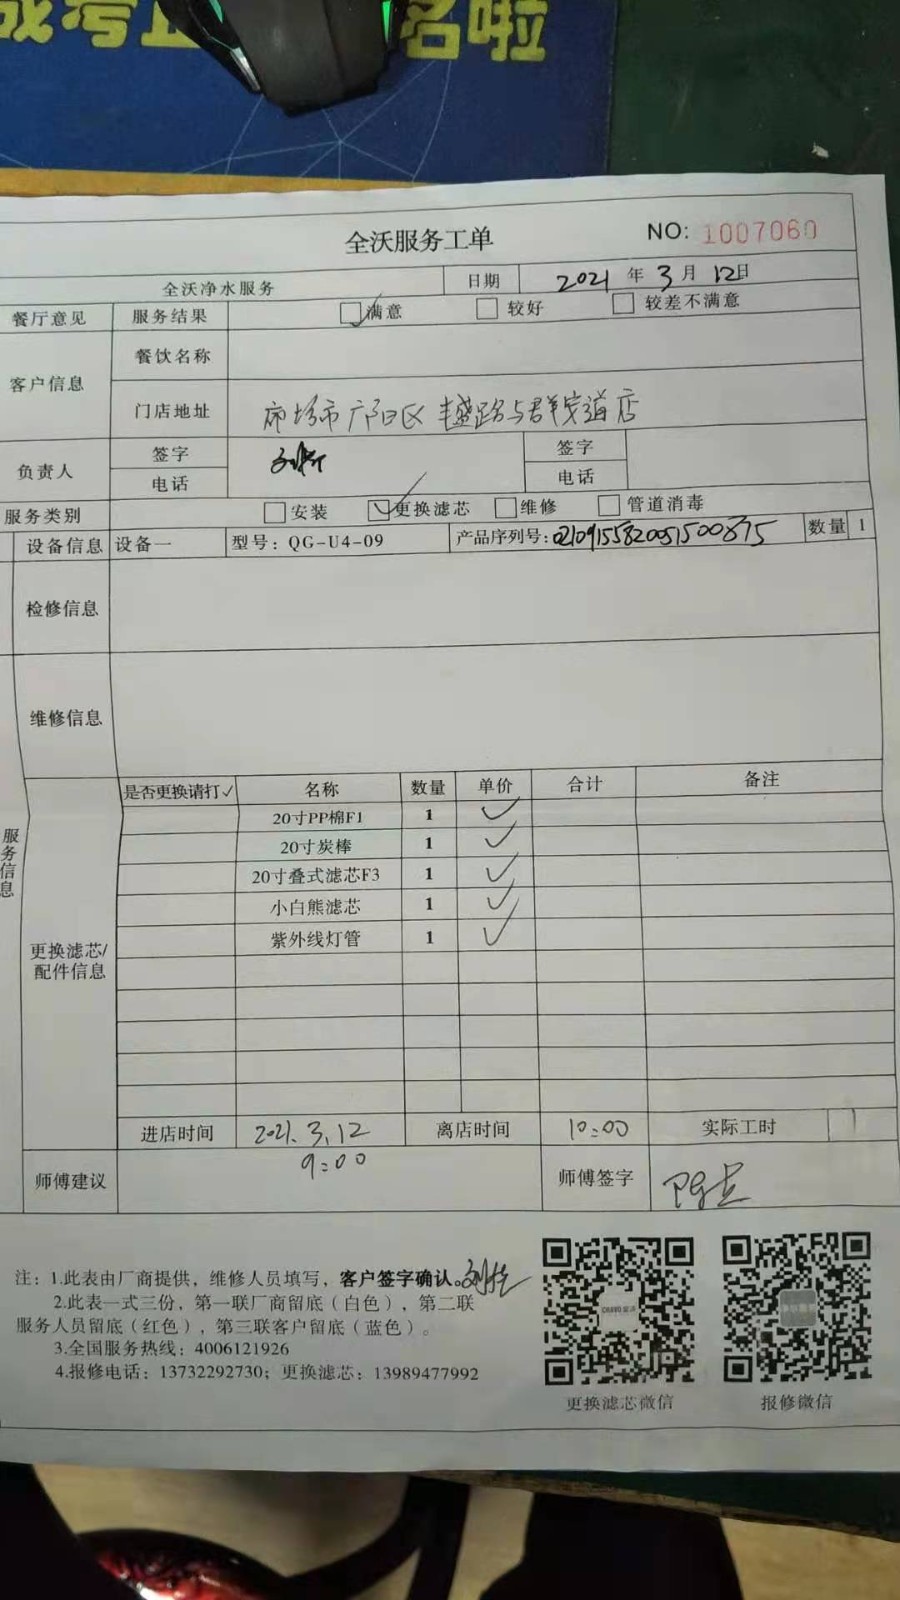 名啦
全沃服务工单
NO: 1007060
全沃净水服务 日期 2021 年 3 月 12日
餐厅意见 服务结果 满意 较好 较差不满意
客户信息 餐饮名称
门店地址 廊坊市广阳区
负责人 签字 签字
电话 电话
服务类别 安装 更换滤芯 维修 管道消毒
设备信息 设备一 型号：QG-U4-09 产品序列号： 数量 1
检修信息
维修信息
服务信息
更换滤芯/配件信息
是否更换请打✓ 名称 数量 单价 合计 备注
20寸PP棉F1 1 ✓
20寸炭棒 1 ✓
20寸叠式滤芯F3 1 ✓
小白熊滤芯 1 ✓
紫外线灯管 1 ✓
进店时间 2021.3.12 离店时间 10:00 实际工时 1
9:00
师傅建议 师傅签字
注：1.此表由厂商提供，维修人员填写，客户签字确认。
2.此表一式三份，第一联厂商留底（白色），第二联
服务人员留底（红色），第三联客户留底（蓝色）。
3.全国服务热线：4006121926
4.报修电话：13732292730；更换滤芯：13989477992
更换滤芯微信 报修微信